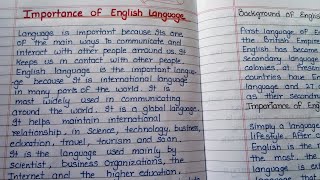 Importance of English Language
Language is important because its one
of the main ways to communicate and
interact with other people around us. It
keeps us in contact with other people.
English language is the important langua-
ge because It is international language
in many parts of the world. It is
most widely used in communicating
around the world. It is a global language.
It helps maintain international
relationship, in Science, technology, business,
education, travel, tourism and so on.
It is the language used mainly by
Scientist, business Organizations, the
Internet and the higher education,
Background of English
First language of E
the British Empire
English has become
secondary language
colonies. At present
countries have En
language and 27
as their secondary
Importance of English
Simply a language
lifestyle. After,
English is the
the most
is the language